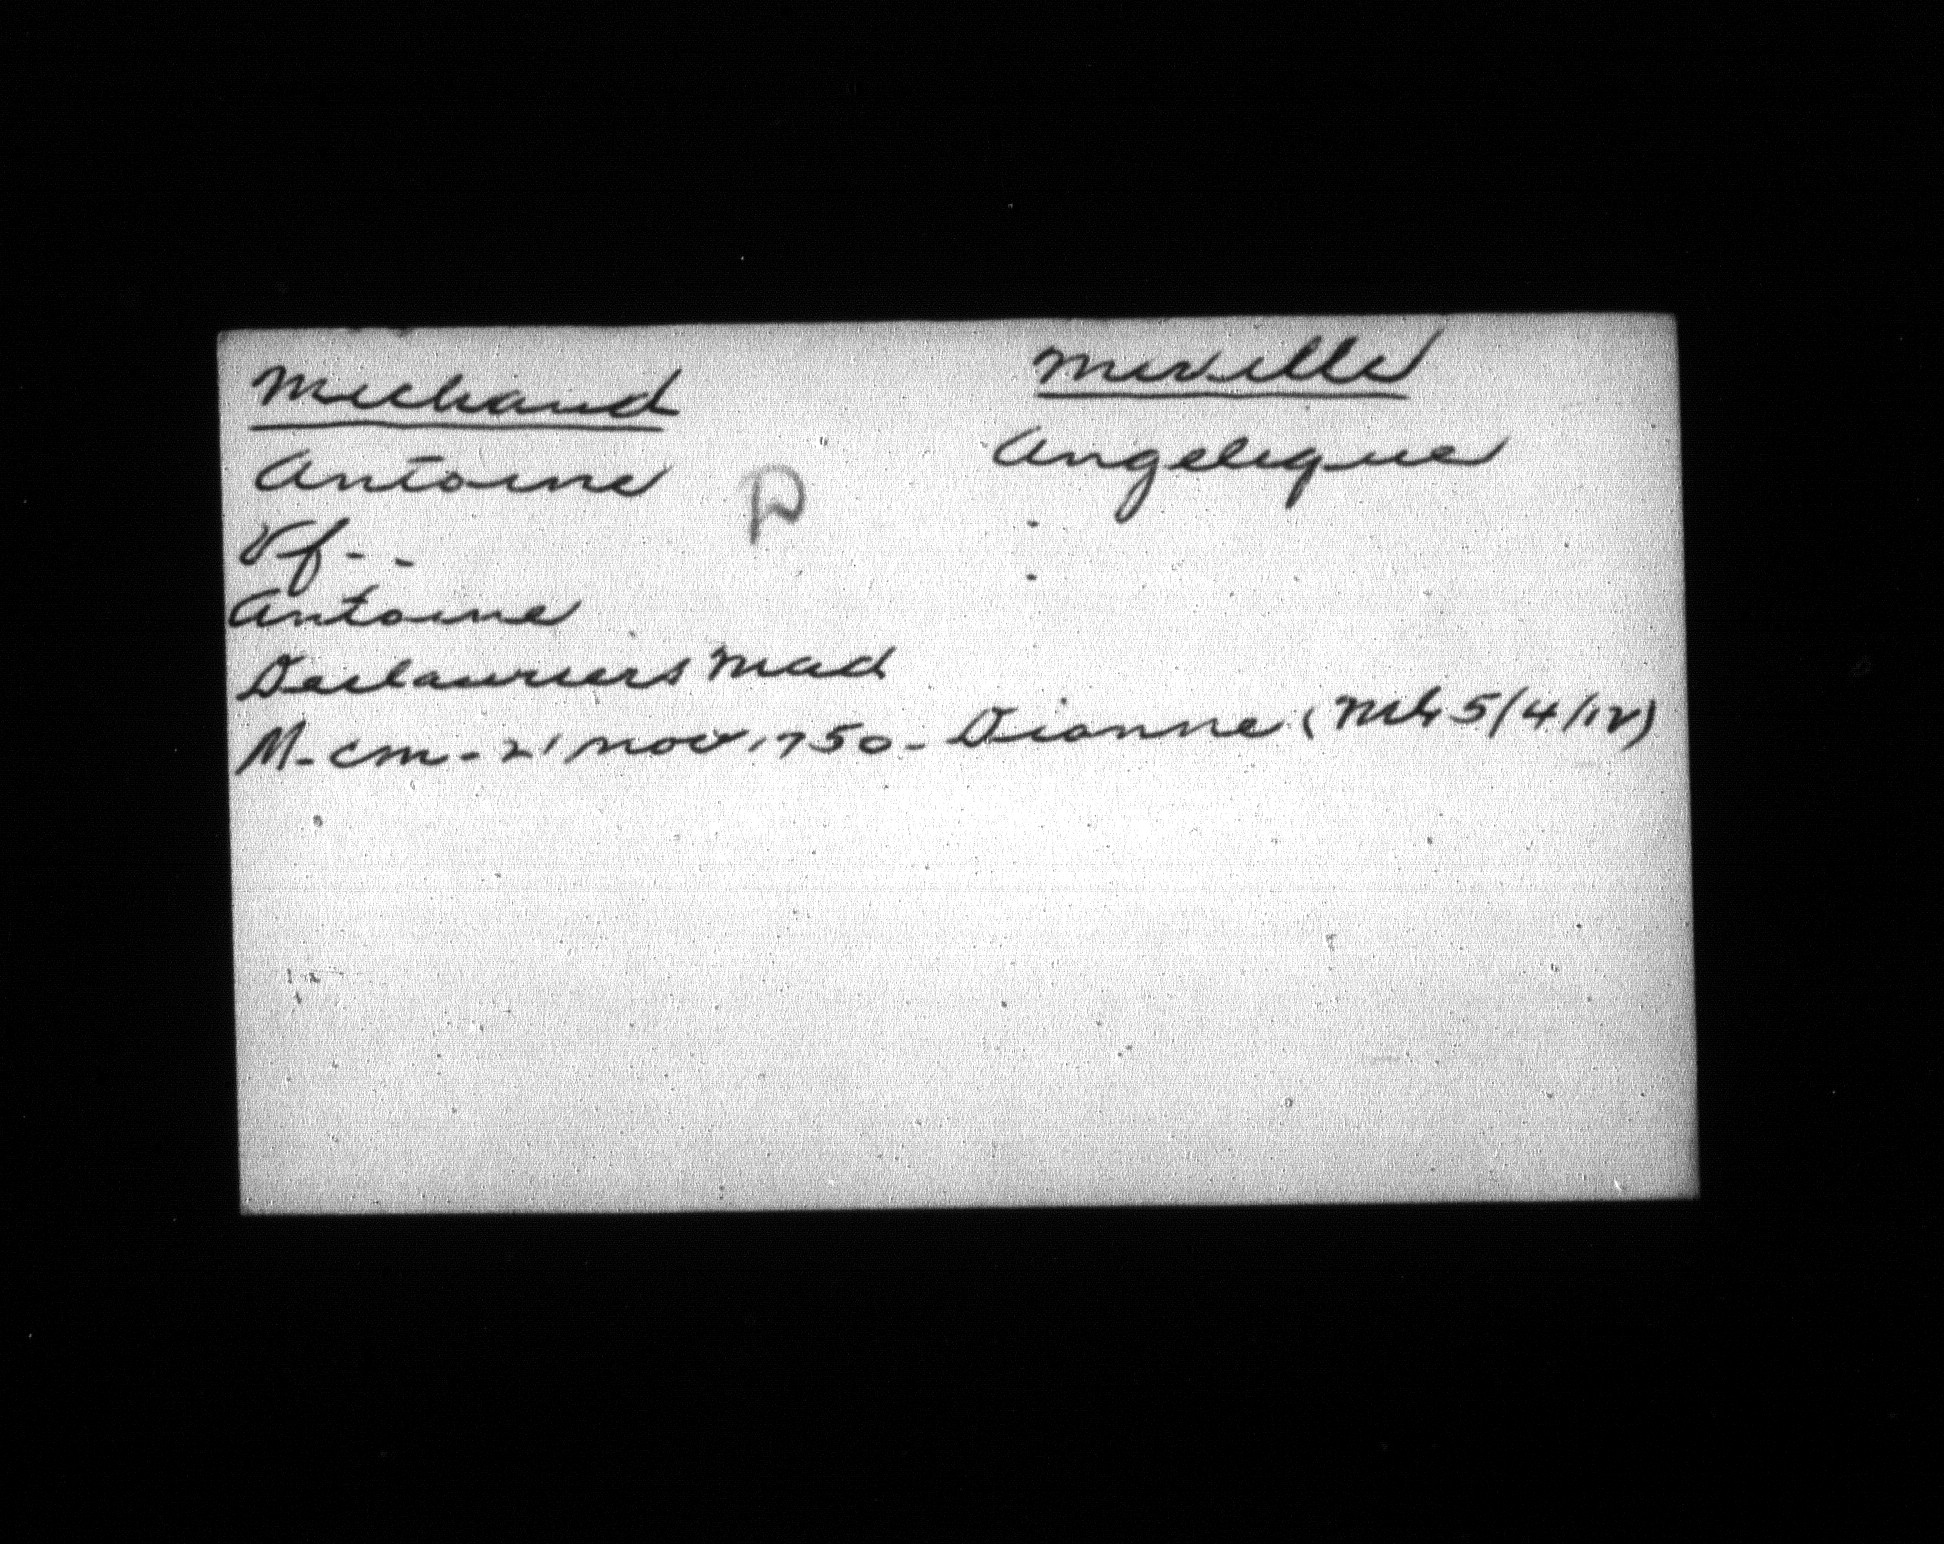 Michaud Miville
Antoine Angelique
P
Vf--
Antoine
Deslauriers Mad
M-cm-21 nov 1750-Dionne (Mh 5/4/12)